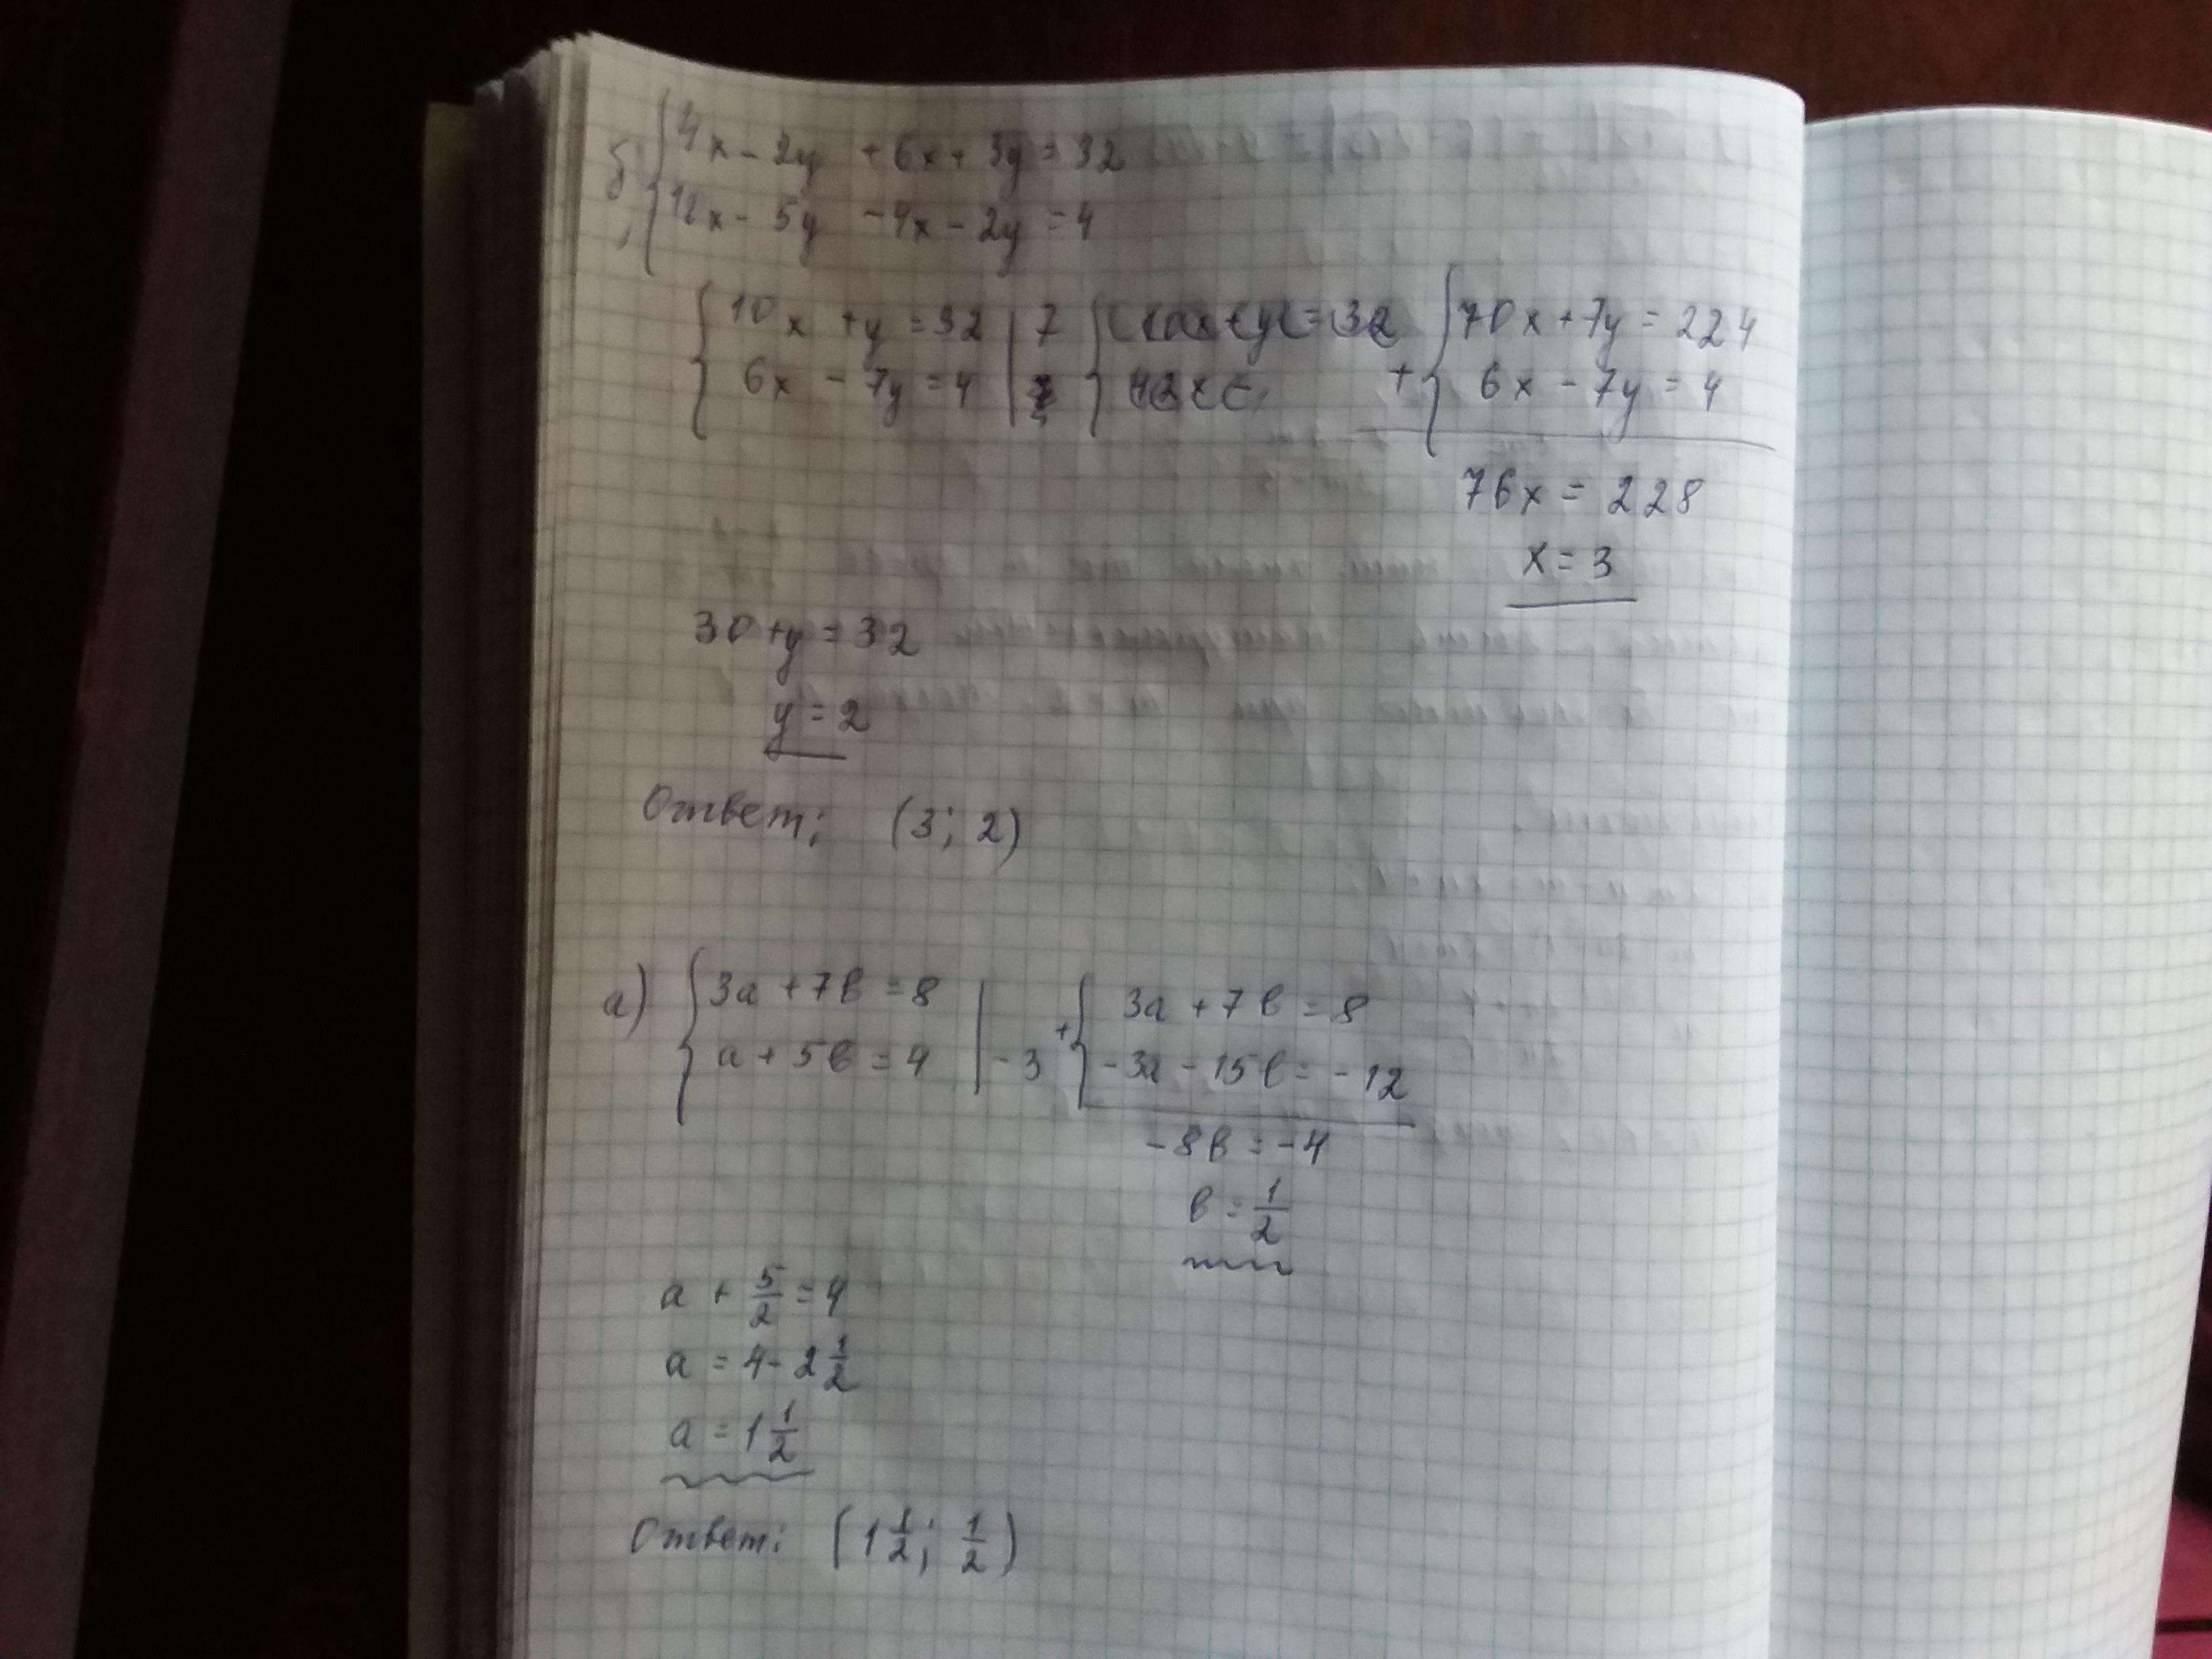 б) { 4x - 2y + 6x + 3y = 32
12x - 5y - 4x - 2y = 4
{ 10x + y = 32 | 7 { 70x + 7y = 224
6x - 7y = 4 | + { 6x - 7y = 4
76x = 228
x = 3
30 + y = 32
y = 2
Ответ: (3; 2)
а) { 3a + 7b = 8 | + { 3a + 7b = 8
a + 5b = 4 | -3 -3a - 15b = -12
-8b = -4
b = 1/2
a + 5/2 = 4
a = 4 - 2 1/2
a = 1 1/2
Ответ: (1 1/2; 1/2)